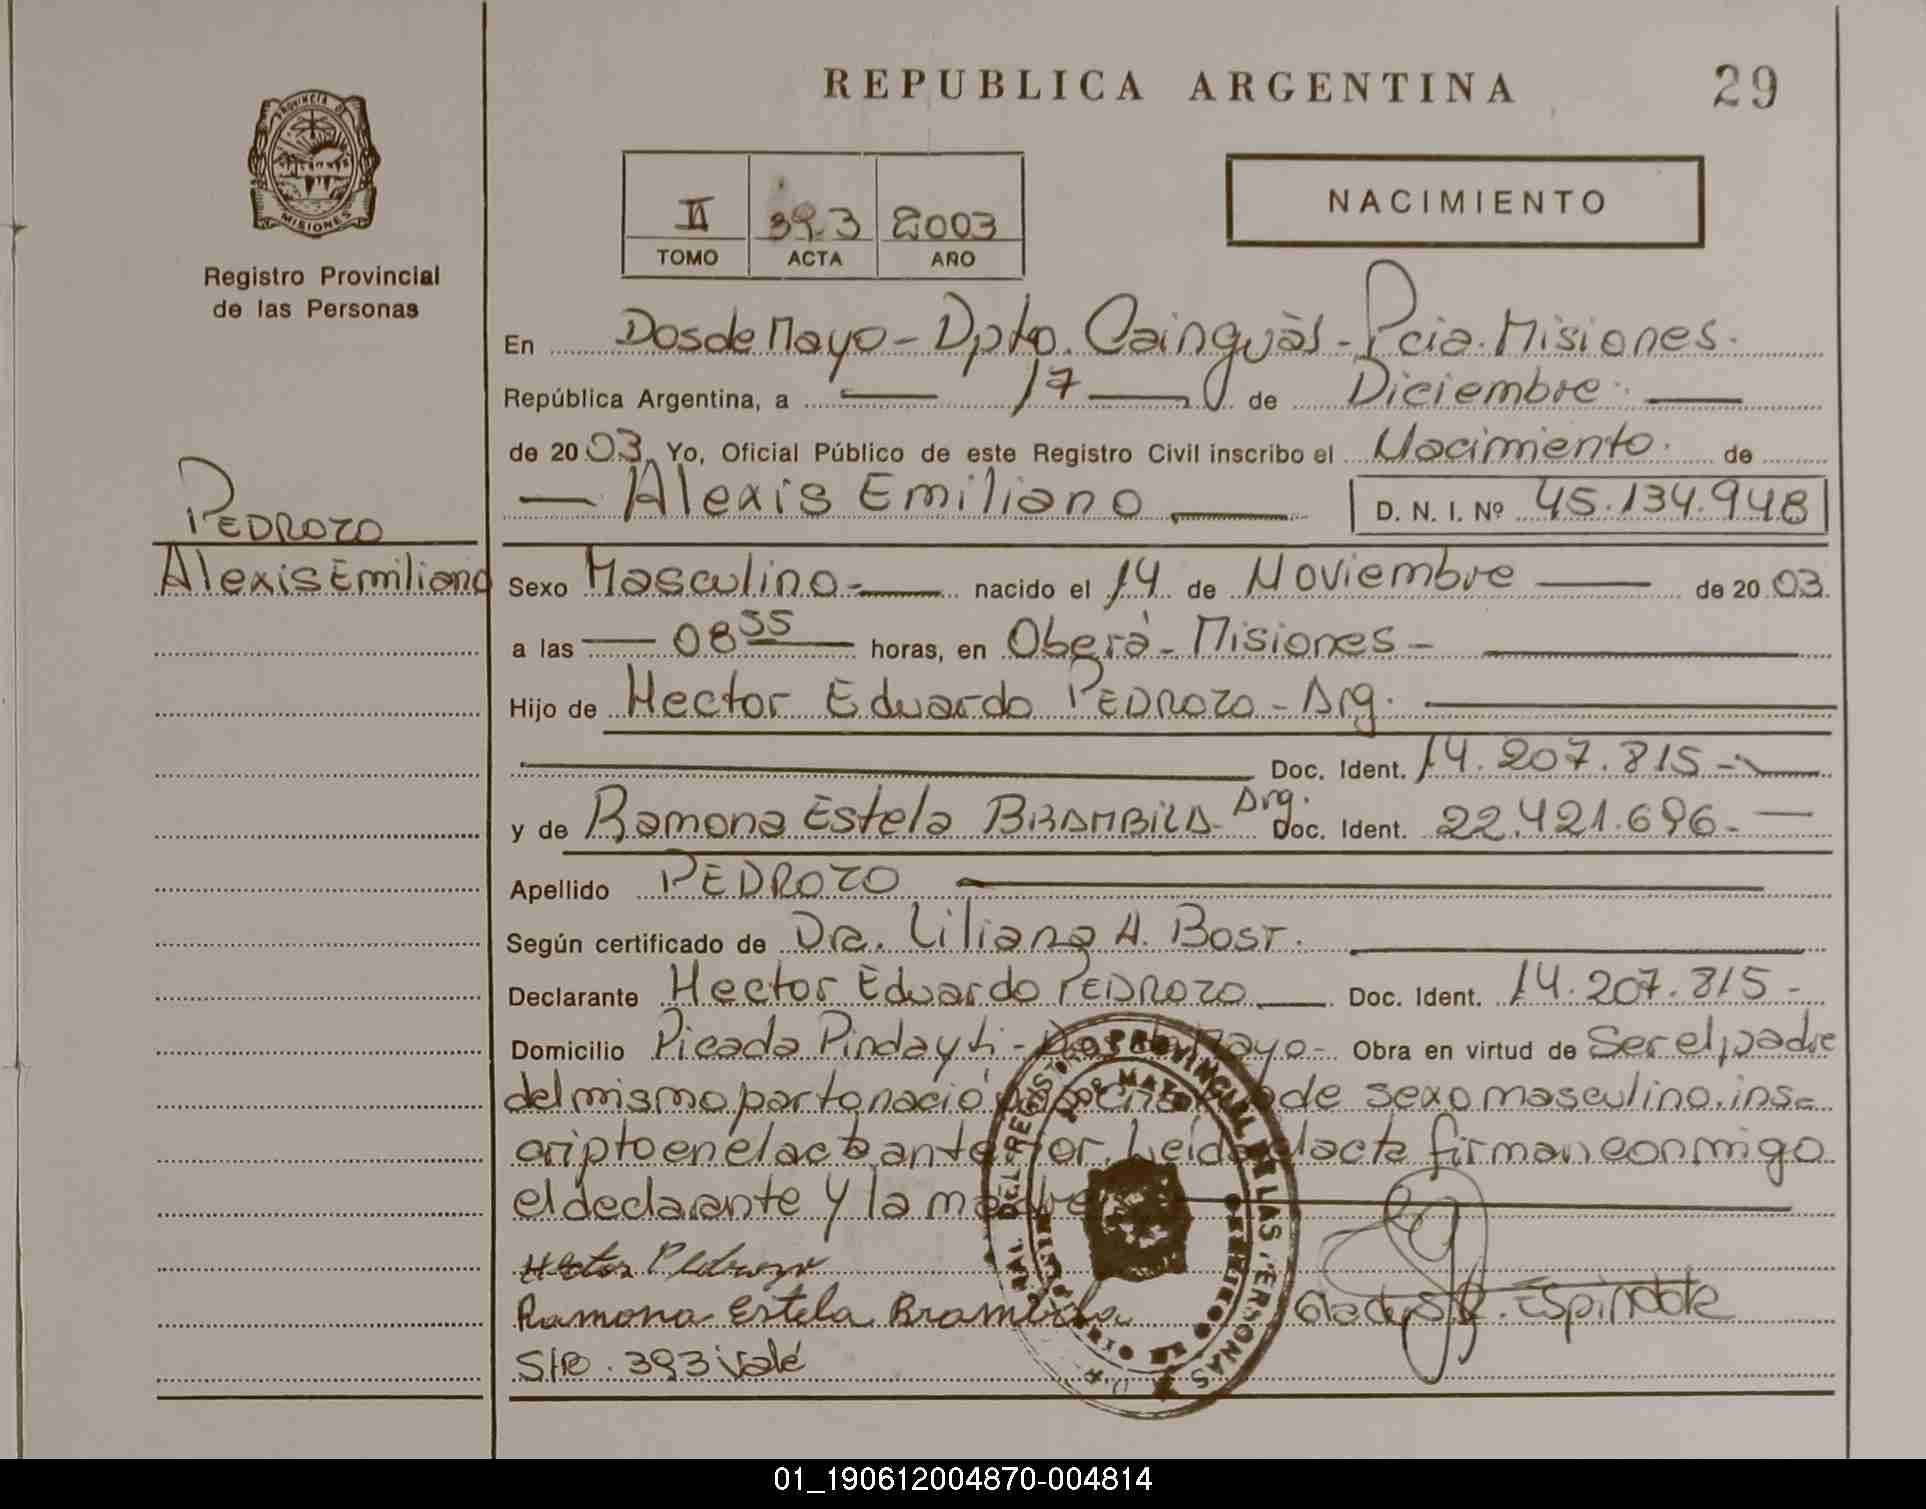 REPUBLICA ARGENTINA
29
PROVINCIA D
MISIONES
Registro Provincial
de las Personas
II 393 2003
TOMO ACTA AÑO
NACIMIENTO
En Dos de Mayo - Dpto. Cainguàs - Pcia. Misiones.
República Argentina, a 17 de Diciembre
de 2003 Yo, Oficial Público de este Registro Civil inscribo el Nacimiento de
Alexis Emiliano D. N. I. Nº 45.134.948
PEDROZO
Alexis Emiliano
Sexo Masculino nacido el 14 de Noviembre de 2003
a las 08 55 horas, en Oberá - Misiones -
Hijo de Hector Eduardo PEDROZO - Arg.
Doc. Ident. 14.207.815 -
y de Ramona Estela BRAMBILA - Arg. Doc. Ident. 22.421.696. -
Apellido PEDROZO
Según certificado de Dra. Liliana A. Bost.
Declarante Hector Eduardo PEDROZO Doc. Ident. 14.207.815 -
Domicilio Picada Pindayti - Mayo - Obra en virtud de Ser el padre
del mismo parto nació de sexo masculino. ins-
cripto en el acta anterior. Leida el acta firman conmigo
el declarante y la madre
Hector Pedrozo
Ramona Estela Brambila
Gladys R. Espindola
S/R. 393 Vale
DEL REGISTRO PROVINCIAL DE LAS PERSONAS
DOS DE MAYO
01_190612004870-004814